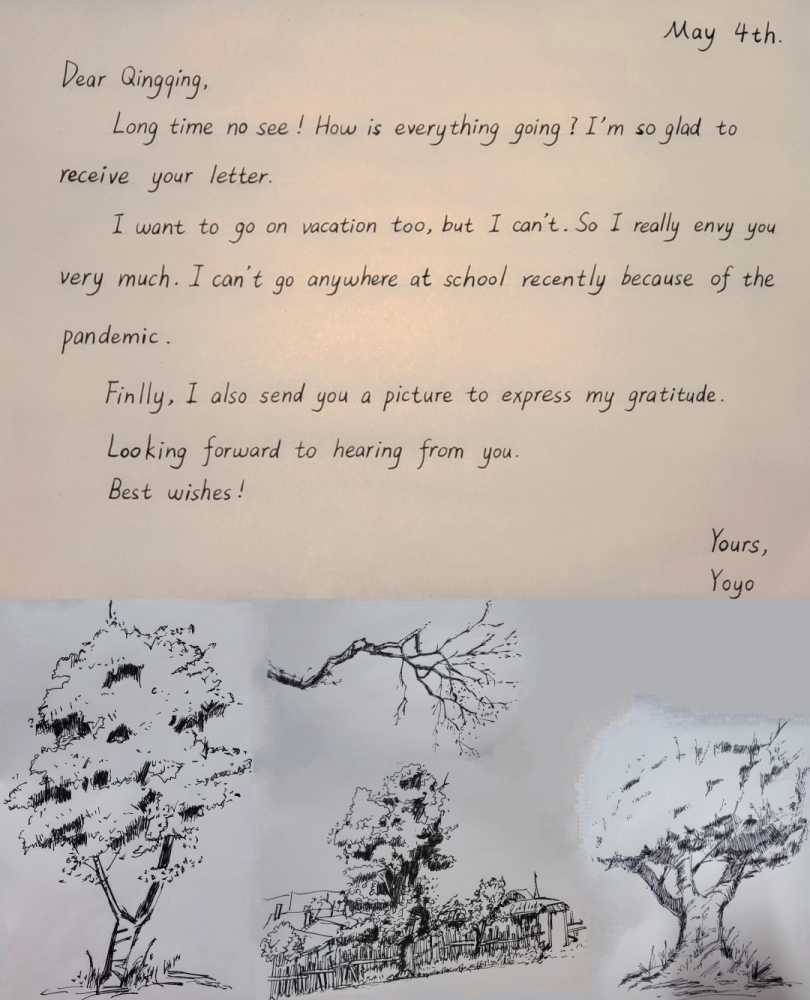 May 4th.
Dear Qingqing,
Long time no see! How is everything going? I'm so glad to
receive your letter.
I want to go on vacation too, but I can't. So I really envy you
very much. I can't go anywhere at school recently because of the
pandemic.
Finlly, I also send you a picture to express my gratitude.
Looking forward to hearing from you.
Best wishes!
Yours,
Yoyo